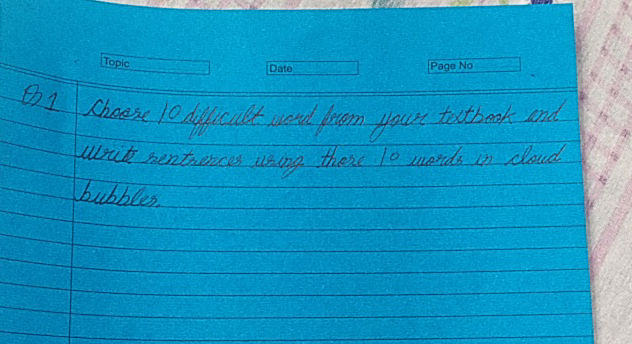 Topic
Date
Page No
Q1 Choose 10 difficult word from your textbook and
write sentences using those 10 words in cloud
bubbles.